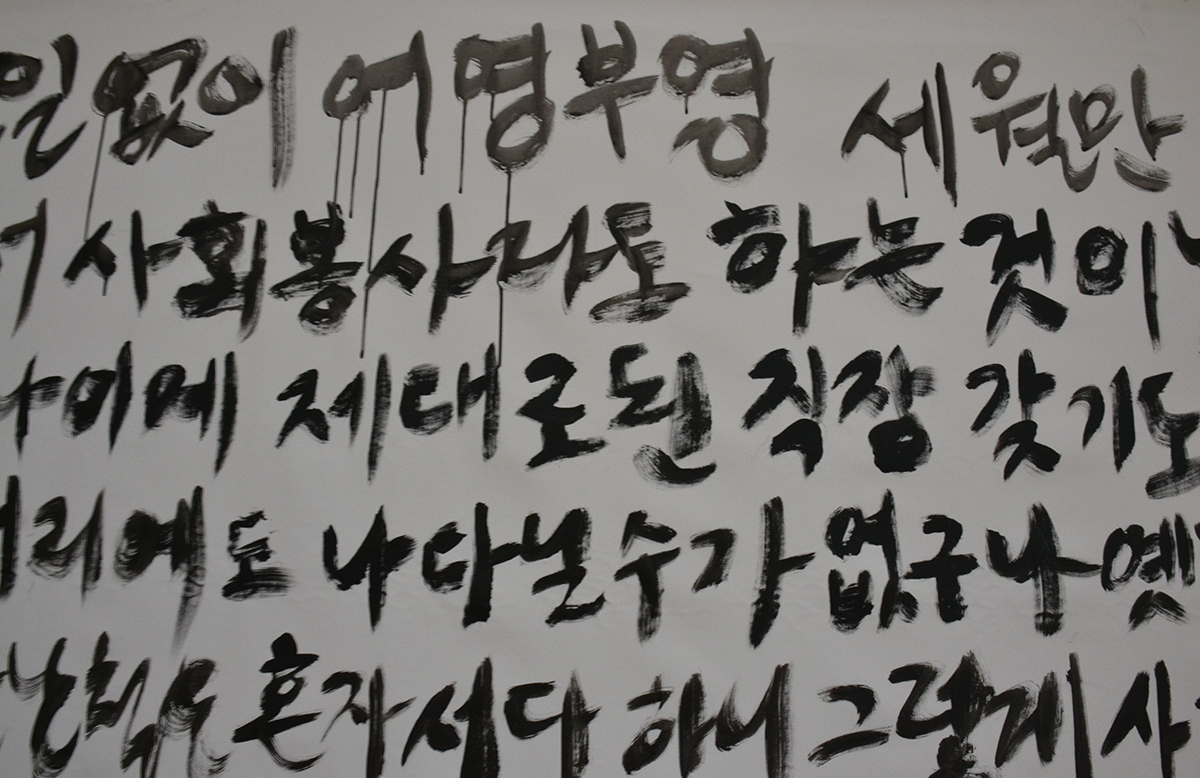 일없이 어영부영 세월만
사회봉사라도 하는 것이
이에 제대로된 직장 갖기도
리에도 나다닐수가 없구나 옛
혼자서다 하니 그렇게 사